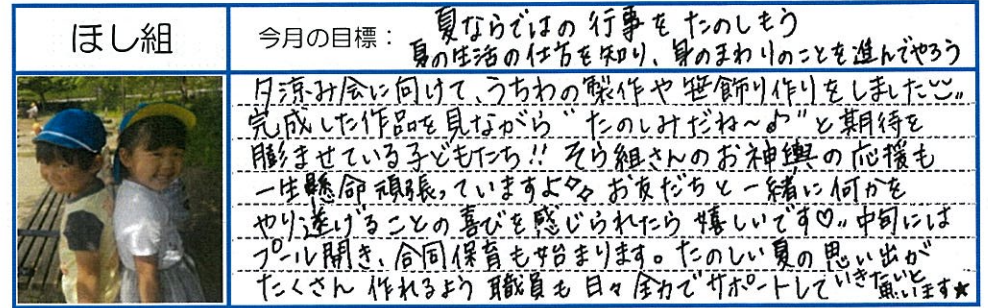 ほし組
今月の目標：
夏ならではの行事をたのしもう
夏の生活の仕方を知り、身のまわりのことを進んでやろう
夕涼み会に向けて、うちわの製作や笹飾り作りをしました
完成した作品を見ながら“たのしみだね～♪”と期待を
膨ませている子どもたち!! そら組さんのお神輿の応援も
一生懸命頑張っていますよ お友だちと一緒に何かを
やり遂げることの喜びを感じられたら嬉しいです♡ 中旬には
プール開き、合同保育も始まります。たのしい夏の思い出が
たくさん作れるよう職員も日々全力でサポートしていきたいと思います★